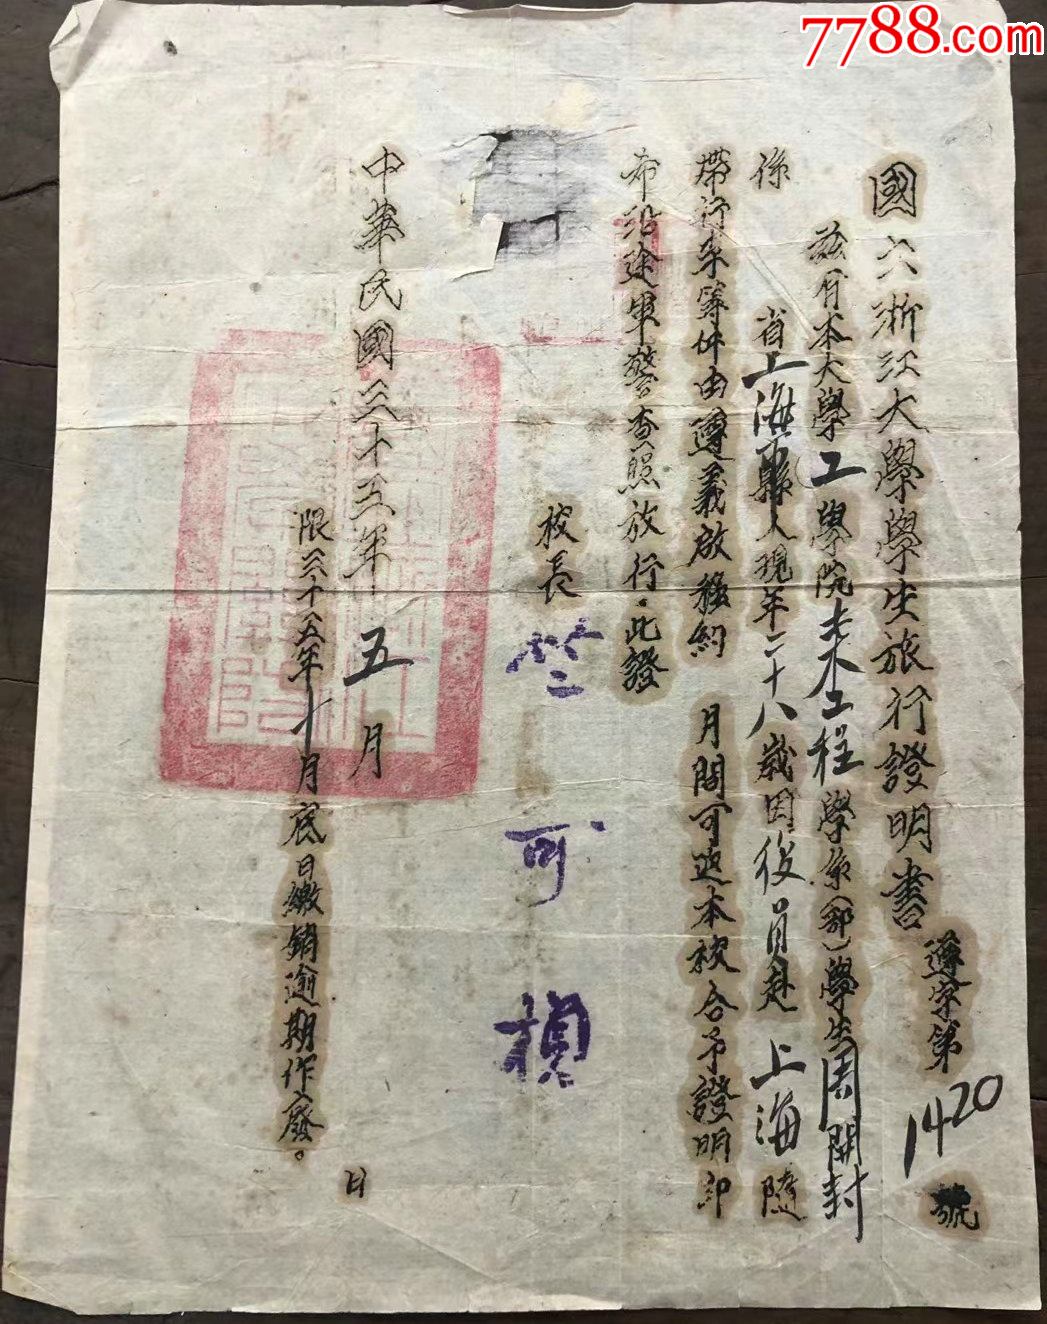 7788.com
國立浙江大學學生旅行證明書
遵字第1420號
茲有本大學工學院土木工程學系(部)學生周開封
係 省上海縣人現年二十八歲因復員赴上海隨
帶行李等件由遵義啟程約 月間可返本校合予證明即
希沿途軍警查照放行此證
校長 竺可楨
中華民國三十五年五月 日
限三十五年十月底日繳銷逾期作廢。